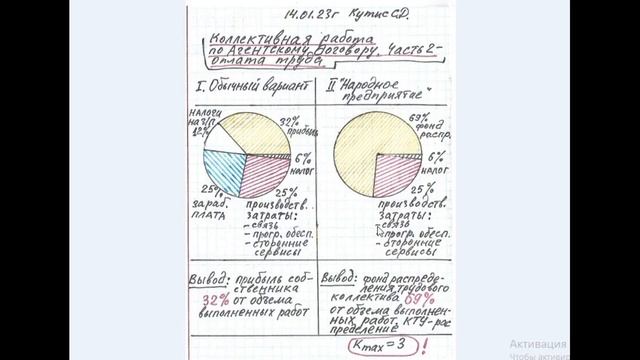 14.01.23г Кутис С.Д.
Коллективная работа
по Агентскому Договору. Часть 2 -
оплата труда.
I. Обычный вариант
II "Народное
предприятие"
налоги
на з/п.
12%
32%
прибыль
6%
налог
25%
зараб.
плата
25%
производств.
затраты:
- связь
- прогр. обесп.
- сторонние
сервисы
69%
фонд
распр.
6%
налог
25%
производств.
затраты:
- связь
- прогр. обесп.
- сторонние
сервисы
Вывод: прибыль соб-
ственника
32% от объема
выполненных работ
Вывод: фонд распреде-
ления трудового
коллектива 69%
от объема выполнен-
ных работ, КТУ-рас
пределение
Kmax = 3 !
Активация
Чтобы активир